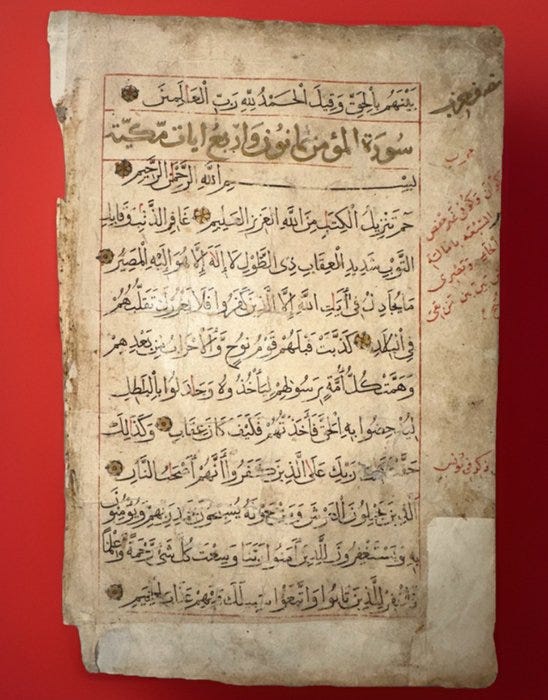 بينهم بالحق وقيل الحمد لله رب العالمين
سورة المؤمن ثمانون واربع ايات مكية
بسم الله الرحمن الرحيم
حم تنزيل الكتب من الله العزيز العليم غافر الذنب وقابل
التوب شديد العقاب ذى الطول لا اله الا هو اليه المصير
ما يجادل فى ايات الله الا الذين كفروا فلا يغررك تقلبهم
فى البلد كذبت قبلهم قوم نوح والاحزاب من بعدهم
وهمت كل امة برسولهم لياخذوه وجادلوا بالبطل
ليدحضوا به الحق فاخذتهم فكيف كان عقاب وكذلك
حقت كلمت ربك على الذين كفروا انهم اصحب النار
الذين يحملون العرش ومن حوله يسبحون بحمد ربهم ويؤمنون
به ويستغفرون للذين امنوا ربنا وسعت كل شئ رحمة وعلما
فاغفر للذين تابوا واتبعوا سبيلك وقهم عذاب الجحيم
ذكر فى يونس